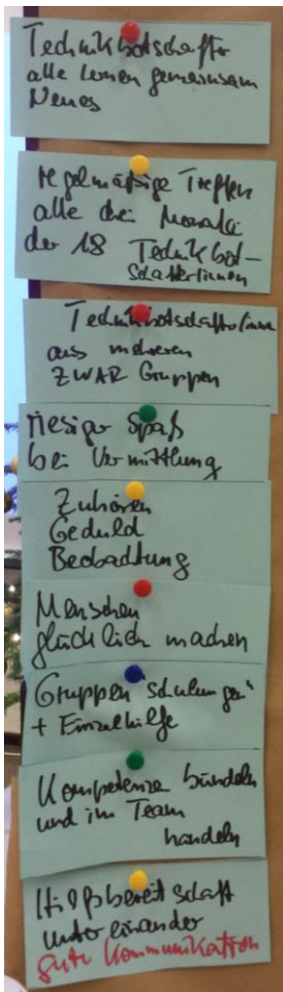 Technikbotschafter
alle lernen gemeinsam
Neues
regelmäßige Treffen
alle drei Monate
der 18 Technikbot-
schafterinnen
Technikbotschafter/innen
aus mehreren
ZWAR Gruppen
riesiger Spaß
bei Vermittlung
Zuhören
Geduld
Beobachtung
Menschen
glücklich machen
Gruppen "schulungen"
+ Einzelhilfe
Kompetenzen bündeln
und im Team
handeln
Hilfsbereitschaft
untereinander
gute Kommunikation